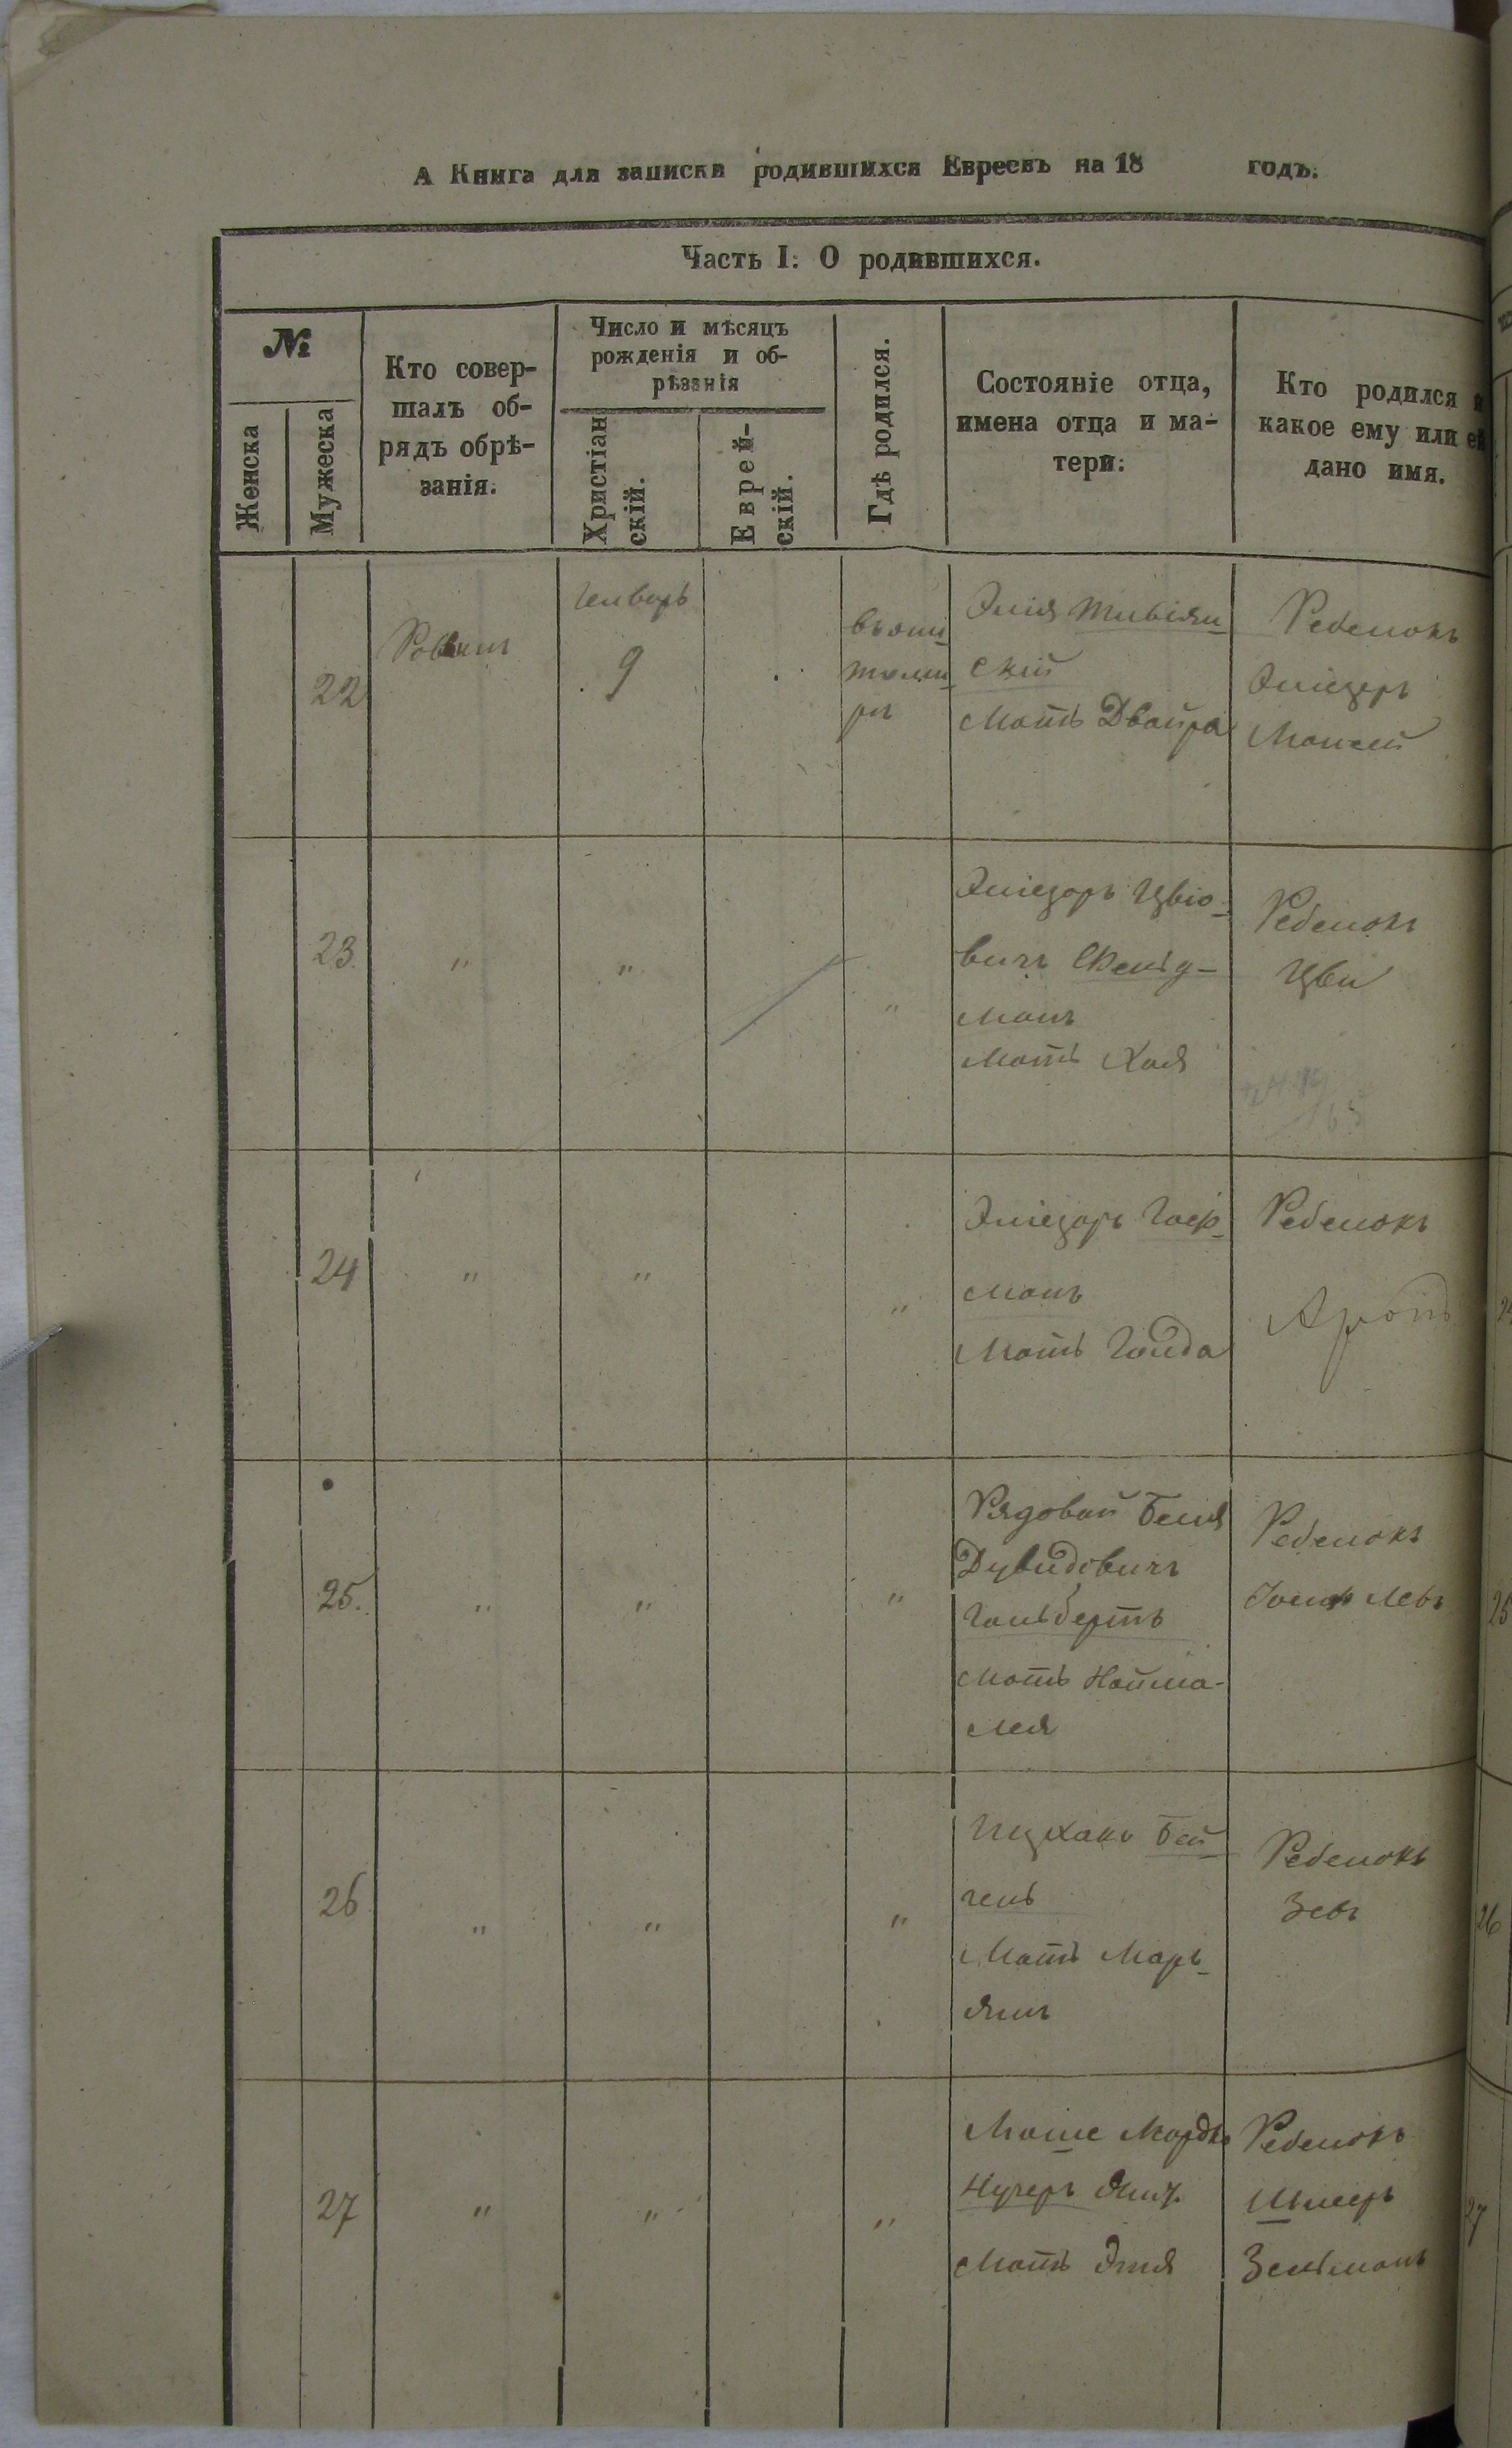 А Книга для записки родившихся Евреевъ на 18 годъ.
Часть I: О родившихся.
№
Женска
Мужеска
Кто совер-
шалъ об-
рядъ обрѣ-
занія.
Число и мѣсяцъ
рожденія и об-
рѣзанія
Христіан
скій.
Еврей-
скій.
Гдѣ родился.
Состояніе отца,
имена отца и ма-
тери:
Кто родился и
какое ему или ей
дано имя.
22
Раввинъ
Генварь
9
Элія
скій
Мать Двойра
Ребенокъ
Эліезеръ
Моисей
23
"
"
"
Эліезоръ Цвіо-
вичъ
манъ
Мать Хая
Ребенокъ
Цви
24
"
"
"
Эліезоръ Гоф-
манъ
Мать Голда
Ребенокъ
Аронъ
25.
"
"
"
Рядовой Бенія
Дувидовичъ
Гольбертъ
Мать
Лея
Ребенокъ
Іосиф Левъ
26
"
"
"
Ицхакъ Бей
Мать Марь-
Ребенокъ
Зевъ
27
"
"
"
Моше Мордко
Мать Этя
Ребенокъ
Шмеръ
Зельманъ
25
26
27